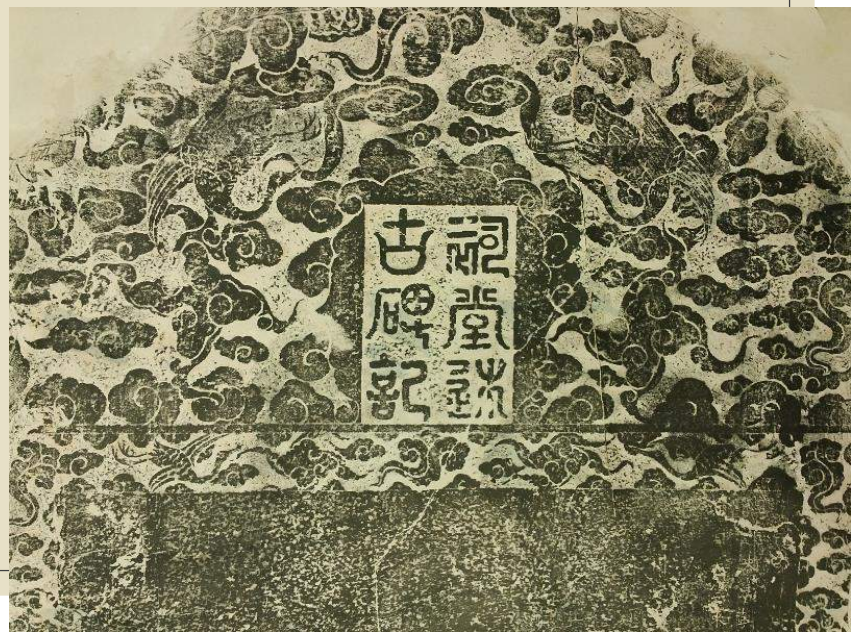 祠堂述
古碑記